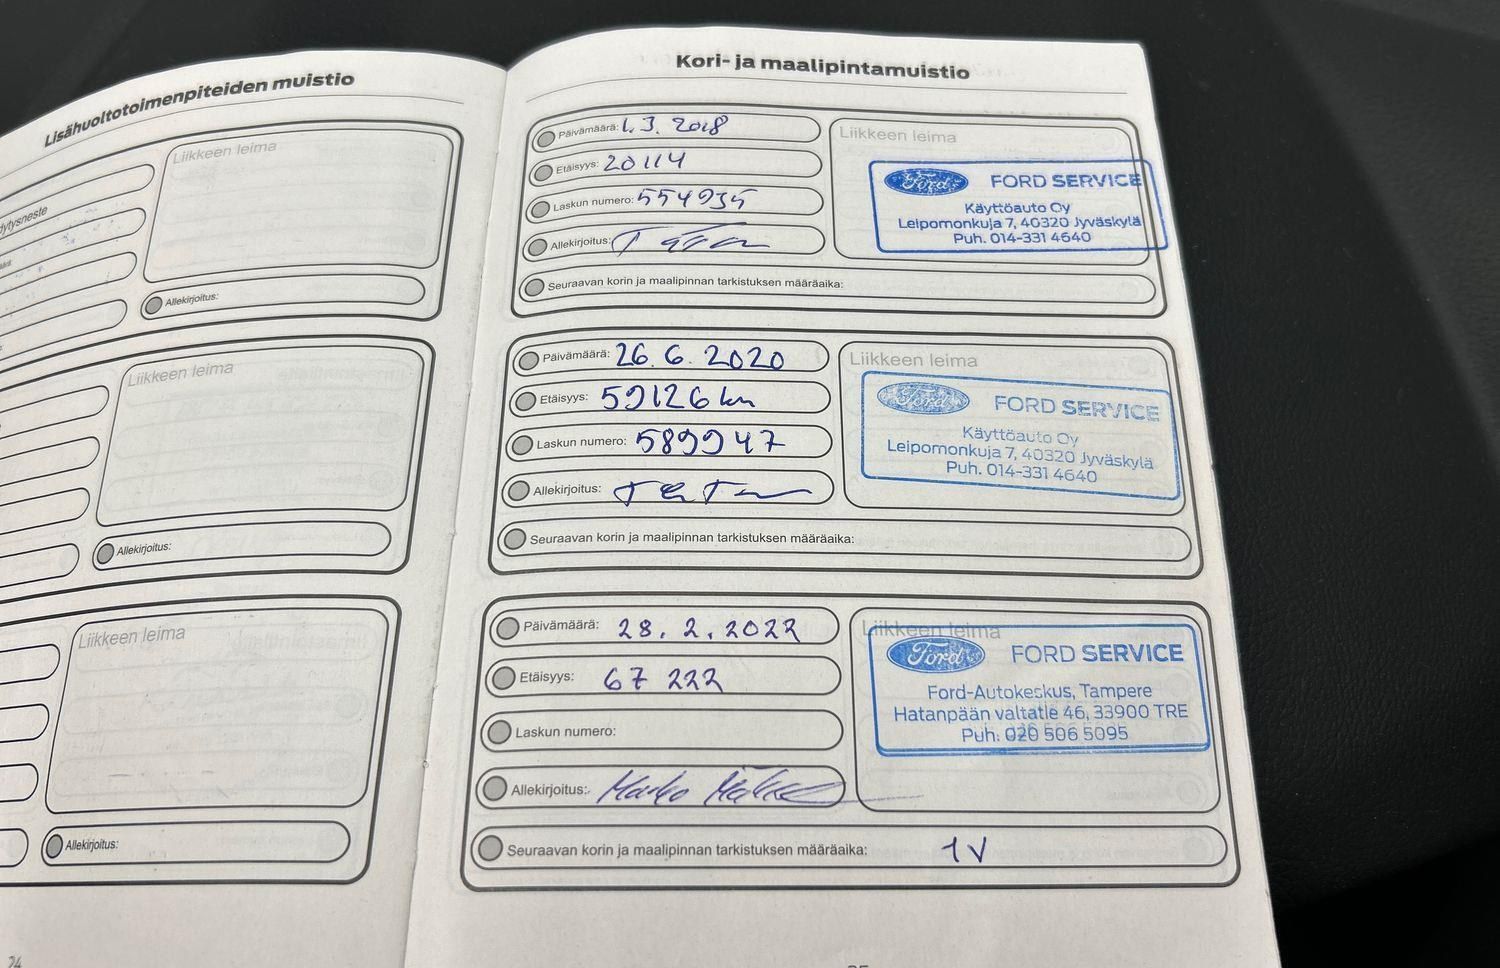 Lisähuoltotoimenpiteiden muistio
Liikkeen leima
Allekirjoitus:
Liikkeen leima
Allekirjoitus:
Liikkeen leima
Allekirjoitus:
24
Kori- ja maalipintamuistio
Päivämäärä: 1.3.2018
Etäisyys: 20114
Laskun numero: 554935
Allekirjoitus:
Seuraavan korin ja maalipinnan tarkistuksen määräaika:
Liikkeen leima
Ford FORD SERVICE
Käyttöauto Oy
Leipomonkuja 7, 40320 Jyväskylä
Puh. 014-331 4640
Päivämäärä: 26.6.2020
Etäisyys: 59126 km
Laskun numero: 589947
Allekirjoitus:
Seuraavan korin ja maalipinnan tarkistuksen määräaika:
Liikkeen leima
Ford FORD SERVICE
Käyttöauto Oy
Leipomonkuja 7, 40320 Jyväskylä
Puh. 014-331 4640
Päivämäärä: 28.2.2022
Etäisyys: 67 222
Laskun numero:
Allekirjoitus: Marko
Seuraavan korin ja maalipinnan tarkistuksen määräaika: 1V
Liikkeen leima
Ford FORD SERVICE
Ford-Autokeskus, Tampere
Hatanpään valtatie 46, 33900 TRE
Puh. 020 506 5095